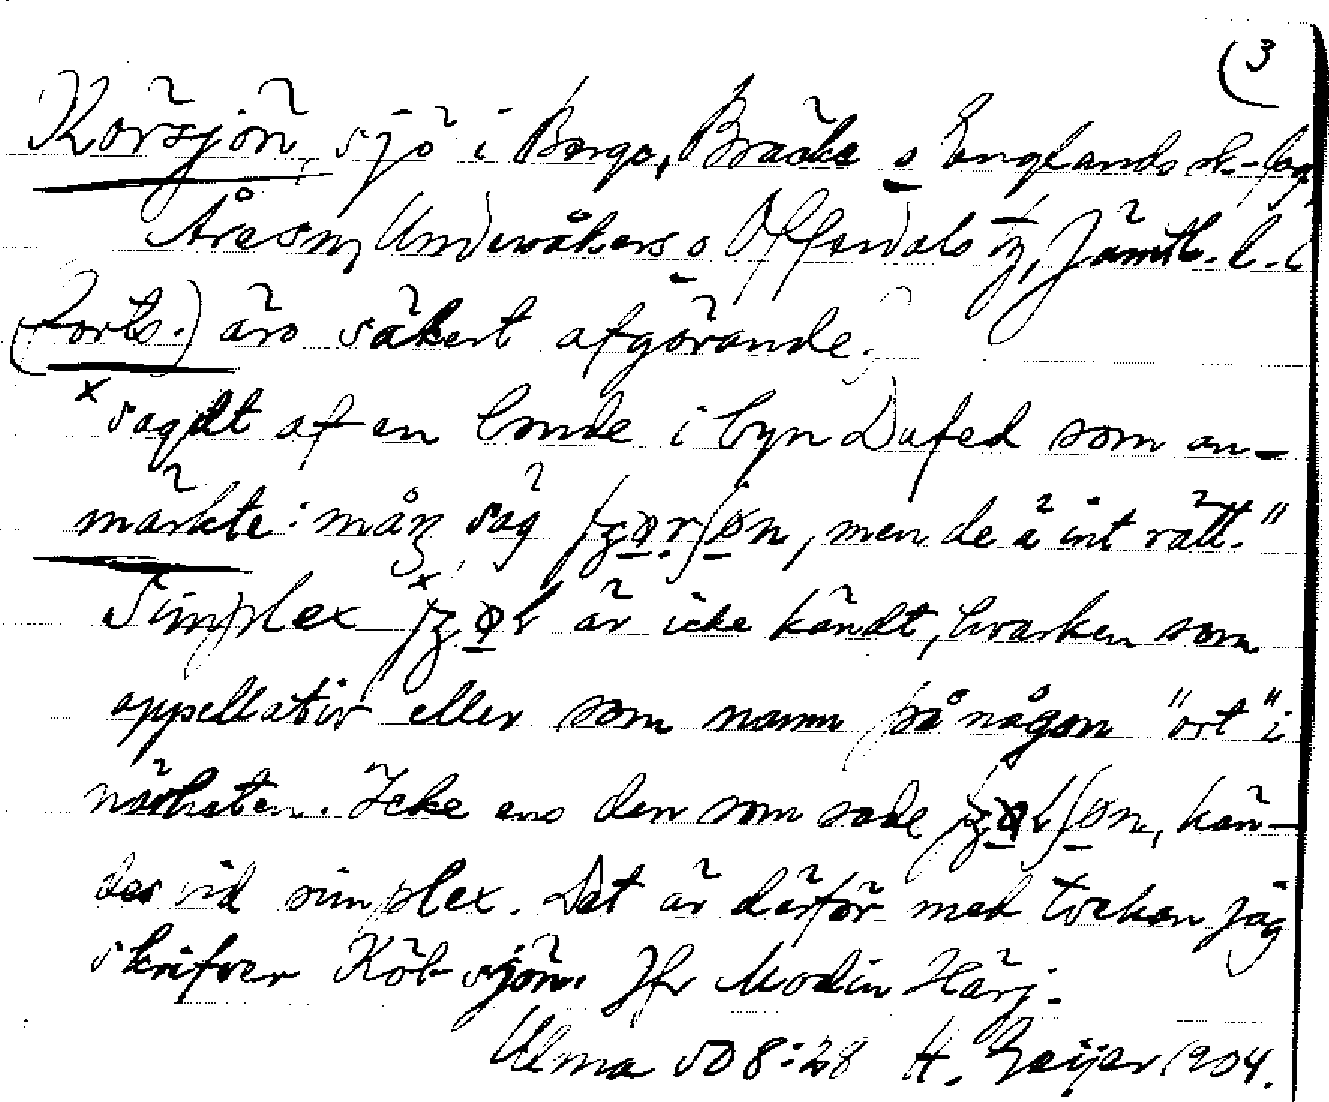 (3
Körsjön, sjö i Bergs, Bräcke o Englands sk-lag,
Åresn, Undersåkers o Offerdals tg, Jämtl. l.
(Forts.) äro säkert afgörande.
x sagdt af en bonde i byn Dufed som an-
märkte: mån säg ör ʃön, men de å int rätt."
Simplex är icke kändt, hvarken som
appellativ eller som namn på någon "ort" i
närheten. Icke ens den som sade kän-
des vid simplex. Det är därför med tvekan jag
skrifver Köl-sjön. Jfr Modin Härj.
Ulma 508:28 H. Geijer 1904.